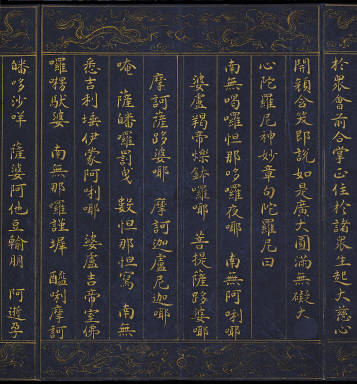 於眾會前合掌正住於諸眾生起大慈心
開顏含笑即說如是廣大圓滿無礙大
心陀羅尼神妙章句陀羅尼曰
南無喝囉怛那哆囉夜哪 南無阿唎哪
婆盧羯帝爍鉢囉哪 菩提薩跢婆哪
摩訶薩跢婆哪 摩訶迦盧尼迦哪
唵 薩皤囉罰曳 數怛那怛寫 南無
悉吉利埵伊蒙阿唎哪 婆盧吉帝室佛
囉楞馱婆 南無那囉謹墀 醯唎摩訶
皤哆沙咩 薩婆阿他豆輸朋 阿逝孕